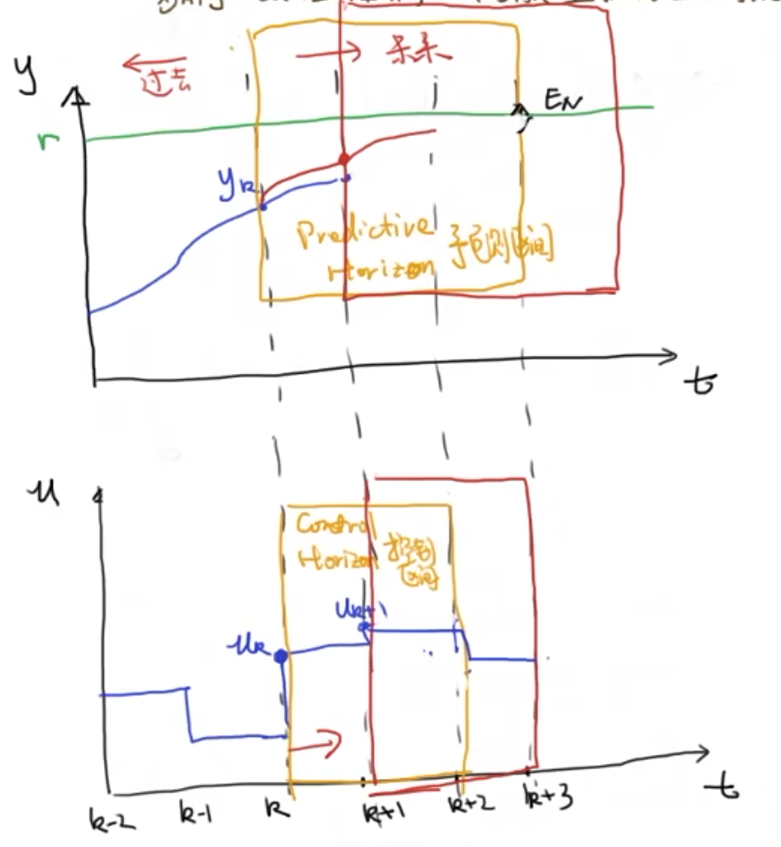 过去
未来
y
r
yk
EN
Predictive
Horizon
预测区间
t
u
Control
Horizon
控制
区间
uk
uk+1
k-2
k-1
k
k+1
k+2
k+3
t